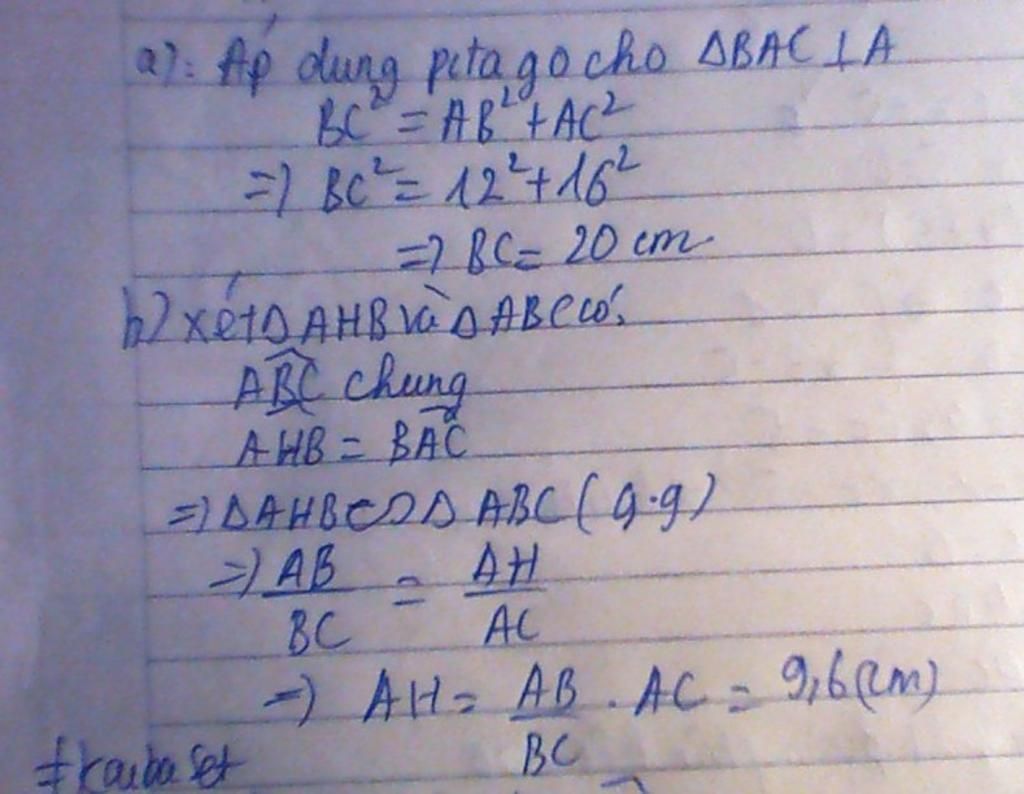 a): Áp dung pitago cho ΔBAC⊥A
BC² = AB² + AC²
=> BC² = 12² + 16²
=> BC = 20 cm
b) xét Δ AHB và Δ ABC có:
ABC chung
AHB = BAC
=> Δ AHB ∽ Δ ABC (g.g)
=> AB/BC = AH/AC
=> AH = AB/BC . AC = 9,6 (cm)
#kaibaset